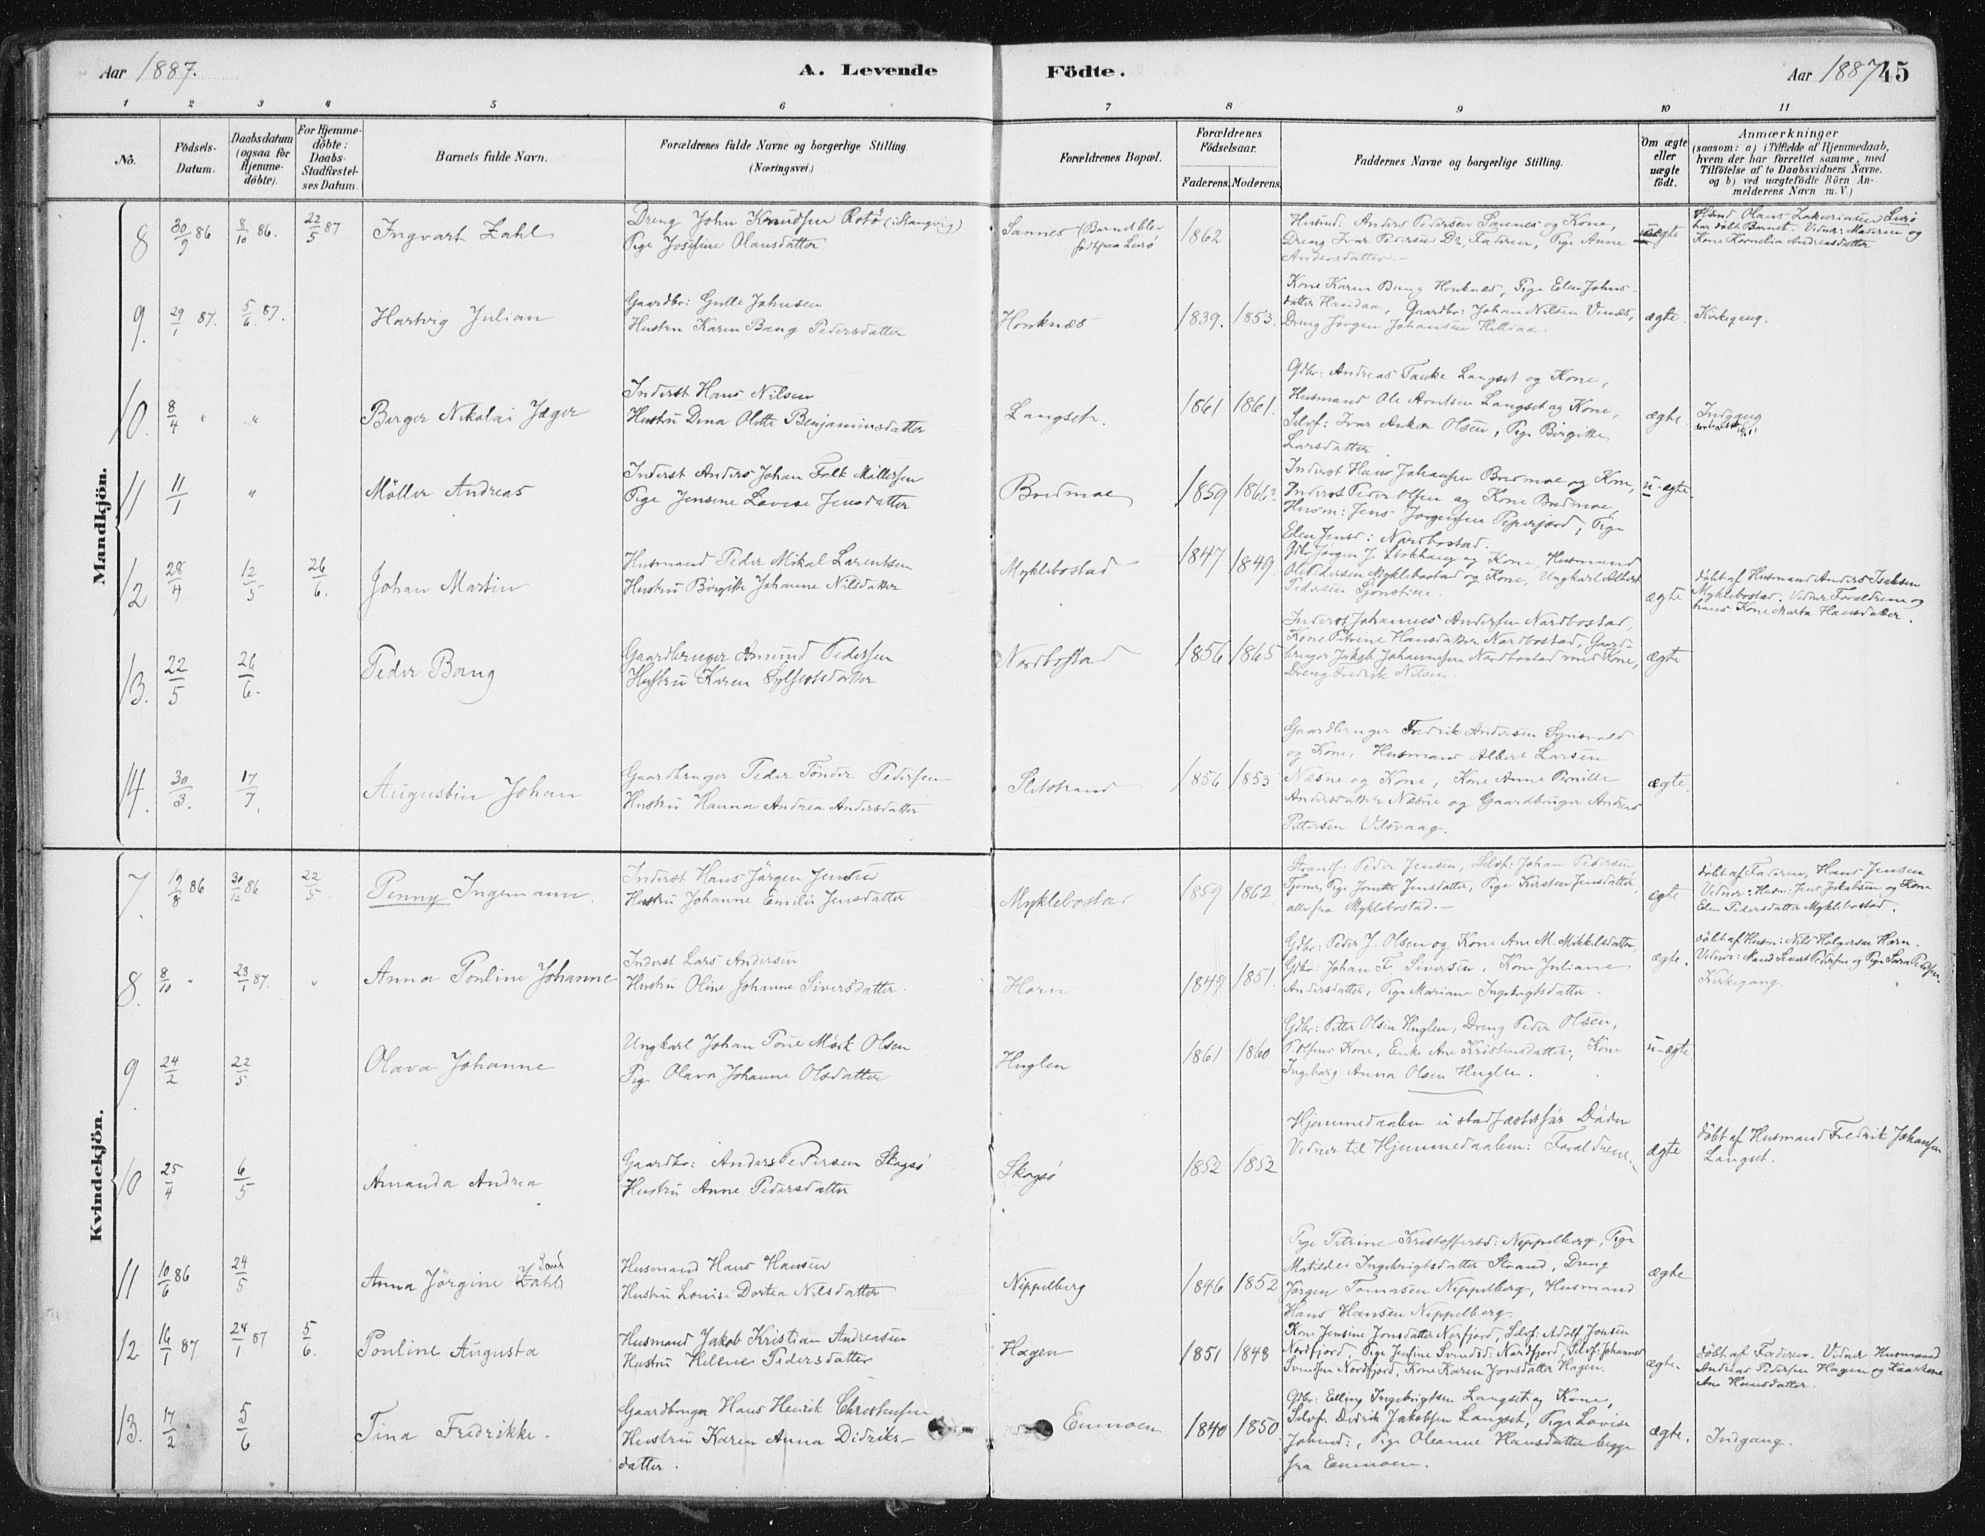 Aar 1887.
A. Levende Födte.
Aar 1887. 45
1 2 3 4 5 6 7 8 9 10 11
No.
Födsels-Datum.
Daabsdatum (ogsaa for Hjemme-döbte).
For Hjemme-döbte: Daabs-Stadfæstel-ses Datum.
Barnets fulde Navn.
Forældrenes fulde Navne og borgerlige Stilling.
(Næringsvei.)
Forældrenes Bopæl.
Forældrenes Födselsaar.
Faderens. Moderens.
Faddernes Navne og borgerlige Stilling.
Om ægte eller uægte født.
Anmærkninger
(saasom: a) i Tilfælde af Hjemmedaab,
hvem der har forrettet samme, med
Tilföielse af to Daabsvidners Navne.
og b) ved uægtefödte Börn An-
melderens Navn m. V.)
Mandkjön.
8 30/9 86 8/10 86. 22/5 87 Ingvart Zahl
Dreng John Knudsen Rotö (i Stangvig)
Pige Josefine Olausdatter
Sannes (Barnet blev
født paa Lurö
1862
Husmd: Anders Pedersen Sannes og Kone,
Dreng Ivar Pedersen Do, Faderen, Pige Anne
Andersdatter.
uægte
Mand Olaus Zakariasen Lurö
har döbt Barnet. Vidner: Moderen og
Kone Kornelia Andreasdatter
9. 29/1 87. 5/6 87. Hartvig Julian
Gaardbr: Gulle Johnsen
Hustru Karen Bang Pedersdatter
Honknæs
1839. 1853.
Kone Karen Bang Honknæs, Pige Elen Johns-
datter Handaa, Gaardbr: Johan Nilsen Vinæs,
Dreng Jørgen Johansen
ægte. Kirkegang.
10. 8/4 " " Berger Nikolai Jæger
Inderst Hans Nilsen
Hustru Dina Olette Benjaminsdatter
Langset.
1861 1861.
Gdbr: Andreas Langset og Kone,
Husmand Ole Arntsen Langset og Kone,
Selvf: Ivar Anker Olsen, Pige Birgitte
Larsdatter
ægte. Indgang
11 11/1 " Möller Andreas
Inderst Anders Johan Falk Möllersen
Pige Jensine Lovise Jensdatter
Bredmoe
1859 1866?
Inderst Hans Johansen Bredmoe og Kone,
Inderst Peder Olsen og Kone Bredmoe,
Husm: Jens Jørgensen, Pige
Elen Jensd: Nordbostad.
u-ægte.
12 28/4 12/5 26/6. Johan Martin
Husmand Peder Mikal Larentsen
Hustru Birgitte Johanne Nilsdatter
Myklebostad
1847 1849.
Gdbr Jørgen J. Stokhaug og Kone, Husmand
Ole Pedersen Myklebostad og Kone, Ungkarl Albert
Pedersen
ægte
döbt af Husmand Anders Isaksen
Myklebostad. Vidner Forældrene og
hans Kone Marta Hansdatter.
13. 22/5 26/6. Peder Bang
Gaardbruger Amund Pedersen
Hustru Karen Sylfestsdatter
Nordbostad
1856 1865
Inderst Johannes Andersen Nordbostad,
Kone Petrine Hansdatter Nordbostad, Gaard-
bruger Jakob Johannesen Nordbostad med Kone,
Dreng Fredrik Nilsen.
ægte
14. 30/3. 17/7. Augustin Johan
Gaardbruger Peder Tönder Pedersen
Hustru Hanna Andrea Andersdatter
Sletstrand
1856 1853
Gaardbruger Fredrik Andersen
og Kone, Husmand Albert Larsen
Næsne og Kone, Kone Anne Pernille
Andersdatter Næsne og Gaardbruger Andreas
Pettersen Vilsvaag.
ægte.
Kvindekjön.
7. 12/8 86 30/12 86 22/5 Penny Ingemann.
Inderst Hans Jörgen Jensen
Hustru Johanne Emilie Jensdatter
Myklebostad
1859 1862
Peder Jensen, Selvf: Johan Pedersen,
Pige Jensdatter, Pige Kirsten Jensdatter,
alle fra Myklebostad.
ægte
döbt af Faderen, Hans Jensen
Vidner: Husm: Jens Jakobsen og Kone
Elen Pedersdatter Myklebostad.
8. 8/10 " 23/1 87. " Anna Pouline Johanne
Inderst Lars Andersen
Hustru Oline Johanne Siversdatter.
Horn
1849 1851.
Gdbr: Peder J. Olsen og Kone Ane M. Mikkelsdatter
Gdbr: Johan F. Siversen, Kone Juliane
Andersdatter, Pige Mariane Ingebrigtsdatter.
ægte.
döbt af Husm: Nils Holgersen Horn.
Vidner: Mand Sivert Pedersen og Pige Sara Pedersen.
Kirkegang.
9 24/2 22/5. Olava Johanne
Ungkarl Johan Tönne Mörk Olsen
Pige Olava Johanne Olsdatter
Huglen
1861 1860
Gdbr: Petter Olsen Huglen, Dreng Peder Olsen,
Kone, Enke Ane Kristensdatter, Kone
Ingeborg Anna Olsen Huglen.
u-ægte
10 25/4 6/5 Amanda Andrea
Gaardbr: Anders Pedersen Skogsö
Hustru Anne Pedersdatter
Skogsö
1852 1852
Hjemmedaaben ei stadfæstet før Döden
Vidner til Hjemmedaaben: Forældrene.
ægte
döbt af Husmand Fredrik Johansen
Langset.
11 10/6 86 24/5 Anna Jörgine Zahl
Husmand Hans Hansen
Hustru Louise Dortea Nilsdatter
Nippelberg
1846 1852
Pige Petrine Kristoffersd: Nippelberg, Pige
Matilde Ingebrigtsdatter Strand, Dreng
Jørgen Tomasen Nippelberg, Husmand
Hans Hansen Nippelberg.
ægte
12 16/1 87 24/1 87 5/6. Pouline Augusta
Husmand Jakob Kristian Andreasen
Hustru Helene Pedersdatter
Hagen
1851 1848
Kone Jensine Jonsdatter Norfjord, Selvf. Adolf Jonsen
Nordfjord, Pige Jensine Svendsd: Nordfjord, Selvf: Johannes
Svendsen Nordfjord, Kone Karen Jonsdatter Hagen.
ægte.
döbt af Faderen. Vidner Husmand
Andreas Pedersen Hagen og Kaarkone
Ane Hansdatter.
13. 17/2 5/6 Tina Fredrikke.
Gaardbruger Hans Henrik Christensen
Hustru Karen Anna Didriks-
datter.
Enmoen
1840 1850
Gdbr: Elling Ingebrigtsen Langset og Kone,
Selvf. Didrik Jakobsen Langset, Pige Lovise
Johnd:, Pige Oleanne Hansdatter begge
fra Enmoen.
ægte. Indgang.